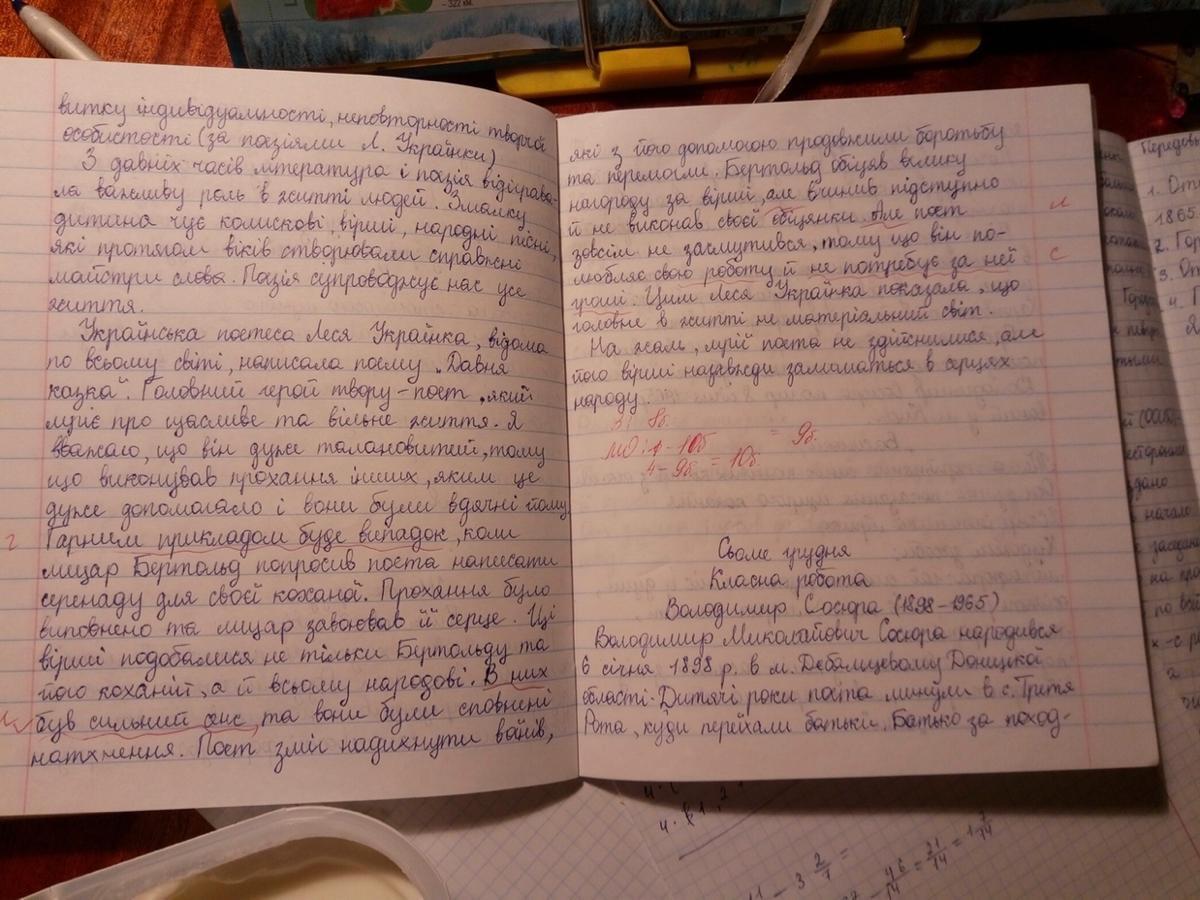 витку індивідуальності, неповторності творчої
особистості (за поезіями Л. Українки)
З давніх часів література і поезія відіграва-
ла важливу роль в житті людей. Змалку
дитина чує колискові, вірші, народні пісні,
які протягом віків створювали справжні
майстри слова. Поезія супроводжує нас усе
життя.
Українська поетеса Леся Українка, відома
по всьому світі, написала поему „Давня
казка". Головний герой твору – поет, який
мріє про щасливе та вільне життя. Я
вважаю, що він дуже талановитий, тому
що виконував прохання інших, яким це
дуже допомагало і вони були вдячні йому.
Гарним прикладом буде випадок, коли
лицар Бертольд попросив поета написати
серенаду для своєї коханої. Прохання було
виповнено та лицар завоював її серце. Ці
вірші подобалися не тільки Бертольду та
його коханій, а й всьому народові. В них
був сильний сенс, та вони були сповнені
натхнення. Поет зміг надихнути воїнів,
г
які з його допомогою продовжили боротьбу
та перемогли. Бертольд обіцяв велику
нагороду за вірші, але вчинив підступно
й не виконав своєї обіцянки. Але поет
зовсім не засмутився, тому що він по-
любляє свою роботу й не потребує за неї
гроші. Цим Леся Українка показала, що
головне в житті не матеріальний світ.
На жаль, мрії поета не здійснилися, але
його вірші назавжди залишаться в серцях
народу.
л
с
8б.
– 10б = 9б.
4 – 9б = 10б
Сьоме грудня
Класна робота
Володимир Сосюра (1898-1965)
Володимир Миколайович Сосюра народився
6 січня 1898 р. в м. Дебальцевому Донецької
області. Дитячі роки поета минули в с. Третя
Рота, куди переїхали батьки. Батько за поход-
1. От
1865
2. Гор
3. От
4. Г
– 322 км.